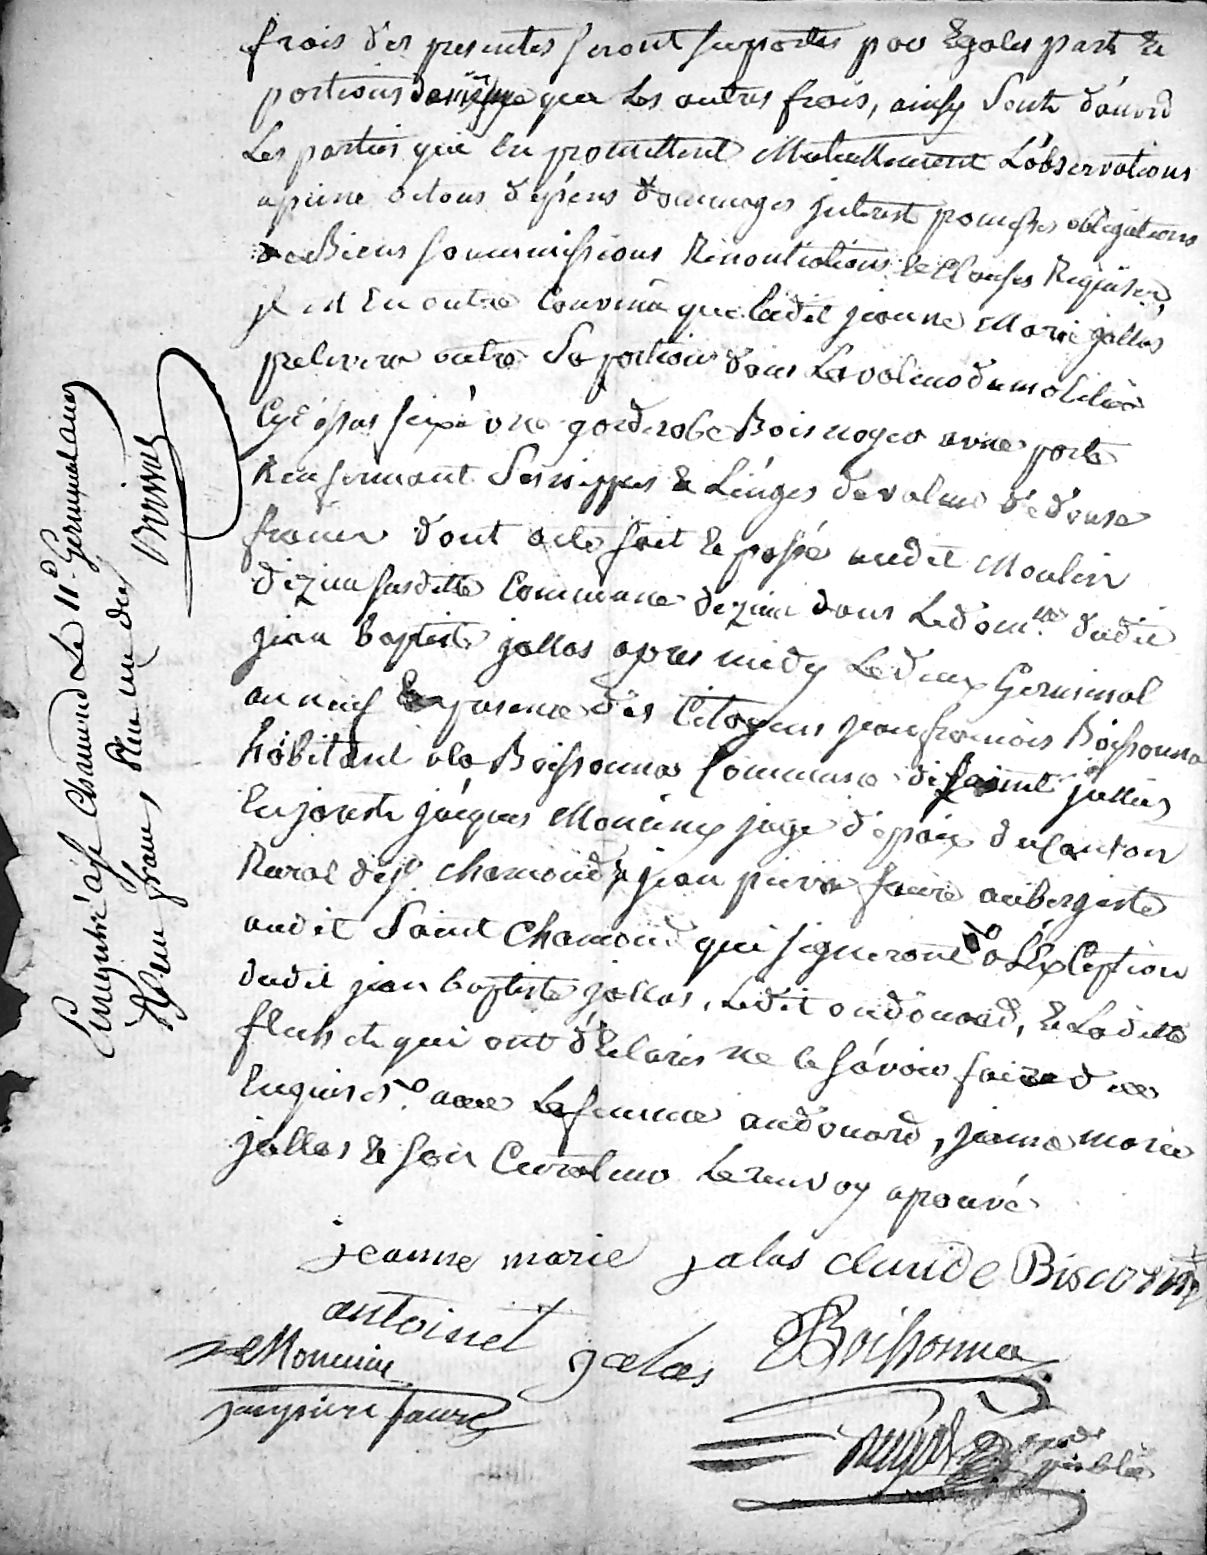 frois des presentes seront suportés par Egales part &
portions de même que Les autres frois, ainsy Sont d'acord
Les parties qui En promettent Mutuellement L'observations
a peine de tous dépens dommages jnterest promesses obligations
de Biens soummissions Renontiations & Clauses Requises,
jl est En outre Convenu que ladit jeanne Marie jallas
prelevera outre Sa portion dans La valeur du mobilier
Cy dessus fixé une garderobe Bois noyer a une porte
Renfermant Ses nippes & Linges de valeur de douse
francs dont acte fait & passé audit Moulin
dizieu susditte Commune dizieu dans Le dom.lle dudit
jean baptiste jallas apres midy Le deux Germinal
an neuf En presence des Citoyens jean francois Boissonna
habitant a la Boissonna Commune de saint jullien
En jarest jacques Moncinix juge de paix du Canton
Rural de St chamond & jean pierre faure aubergiste
audit Saint Chamond qui signeront a L'Exception
dudit jean baptiste jallas, Ledit oudouard, & Laditte
flachat qui ont déclarés ne le sávoir faire de ce
Enquis et avec La femme audouard, jeanne marie
jallas & son Curateur Le renvoy aprouvé
jeanne marie jalas claude Biscorne
antoinet jalas Boissonna
Moncinix
jean pierre faure
not.re
public
Enregistré a St Chamond Le 11.e Germinal an 9
Reçu francs Plus un dix